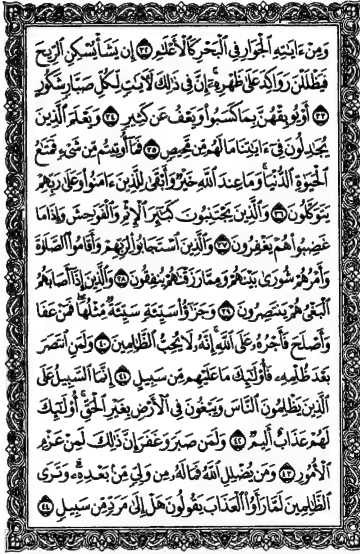 وَمِنْ ءَايَٰتِهِ ٱلْجَوَارِ فِى ٱلْبَحْرِ كَٱلْأَعْلَٰمِ ٣٢ إِن يَشَأْ يُسْكِنِ ٱلرِّيحَ
فَيَظْلَلْنَ رَوَاكِدَ عَلَىٰ ظَهْرِهِۦٓ إِنَّ فِى ذَٰلِكَ لَءَايَٰتٍ لِّكُلِّ صَبَّارٍ شَكُورٍ
٣٣ أَوْ يُوبِقْهُنَّ بِمَا كَسَبُوا۟ وَيَعْفُ عَن كَثِيرٍ ٣٤ وَيَعْلَمَ ٱلَّذِينَ
يُجَٰدِلُونَ فِىٓ ءَايَٰتِنَا مَا لَهُم مِّن مَّحِيصٍ ٣٥ فَمَآ أُوتِيتُم مِّن شَىْءٍ فَمَتَٰعُ
ٱلْحَيَوٰةِ ٱلدُّنْيَا وَمَا عِندَ ٱللَّهِ خَيْرٌ وَأَبْقَىٰ لِلَّذِينَ ءَامَنُوا۟ وَعَلَىٰ رَبِّهِمْ
يَتَوَكَّلُونَ ٣٦ وَٱلَّذِينَ يَجْتَنِبُونَ كَبَٰٓئِرَ ٱلْإِثْمِ وَٱلْفَوَٰحِشَ وَإِذَا مَا
غَضِبُوا۟ هُمْ يَغْفِرُونَ ٣٧ وَٱلَّذِينَ ٱسْتَجَابُوا۟ لِرَبِّهِمْ وَأَقَامُوا۟ ٱلصَّلَوٰةَ
وَأَمْرُهُمْ شُورَىٰ بَيْنَهُمْ وَمِمَّا رَزَقْنَٰهُمْ يُنفِقُونَ ٣٨ وَٱلَّذِينَ إِذَآ أَصَابَهُمُ
ٱلْبَغْىُ هُمْ يَنتَصِرُونَ ٣٩ وَجَزَٰٓؤُا۟ سَيِّئَةٍ سَيِّئَةٌ مِّثْلُهَا فَمَنْ عَفَا
وَأَصْلَحَ فَأَجْرُهُۥ عَلَى ٱللَّهِ إِنَّهُۥ لَا يُحِبُّ ٱلظَّٰلِمِينَ ٤٠ وَلَمَنِ ٱنتَصَرَ
بَعْدَ ظُلْمِهِۦ فَأُو۟لَٰٓئِكَ مَا عَلَيْهِم مِّن سَبِيلٍ ٤١ إِنَّمَا ٱلسَّبِيلُ عَلَى
ٱلَّذِينَ يَظْلِمُونَ ٱلنَّاسَ وَيَبْغُونَ فِى ٱلْأَرْضِ بِغَيْرِ ٱلْحَقِّ أُو۟لَٰٓئِكَ
لَهُمْ عَذَابٌ أَلِيمٌ ٤٢ وَلَمَن صَبَرَ وَغَفَرَ إِنَّ ذَٰلِكَ لَمِنْ عَزْمِ
ٱلْأُمُورِ ٤٣ وَمَن يُضْلِلِ ٱللَّهُ فَمَا لَهُۥ مِن وَلِىٍّ مِّنۢ بَعْدِهِۦ وَتَرَى
ٱلظَّٰلِمِينَ لَمَّا رَأَوُا۟ ٱلْعَذَابَ يَقُولُونَ هَلْ إِلَىٰ مَرَدٍّ مِّن سَبِيلٍ ٤٤